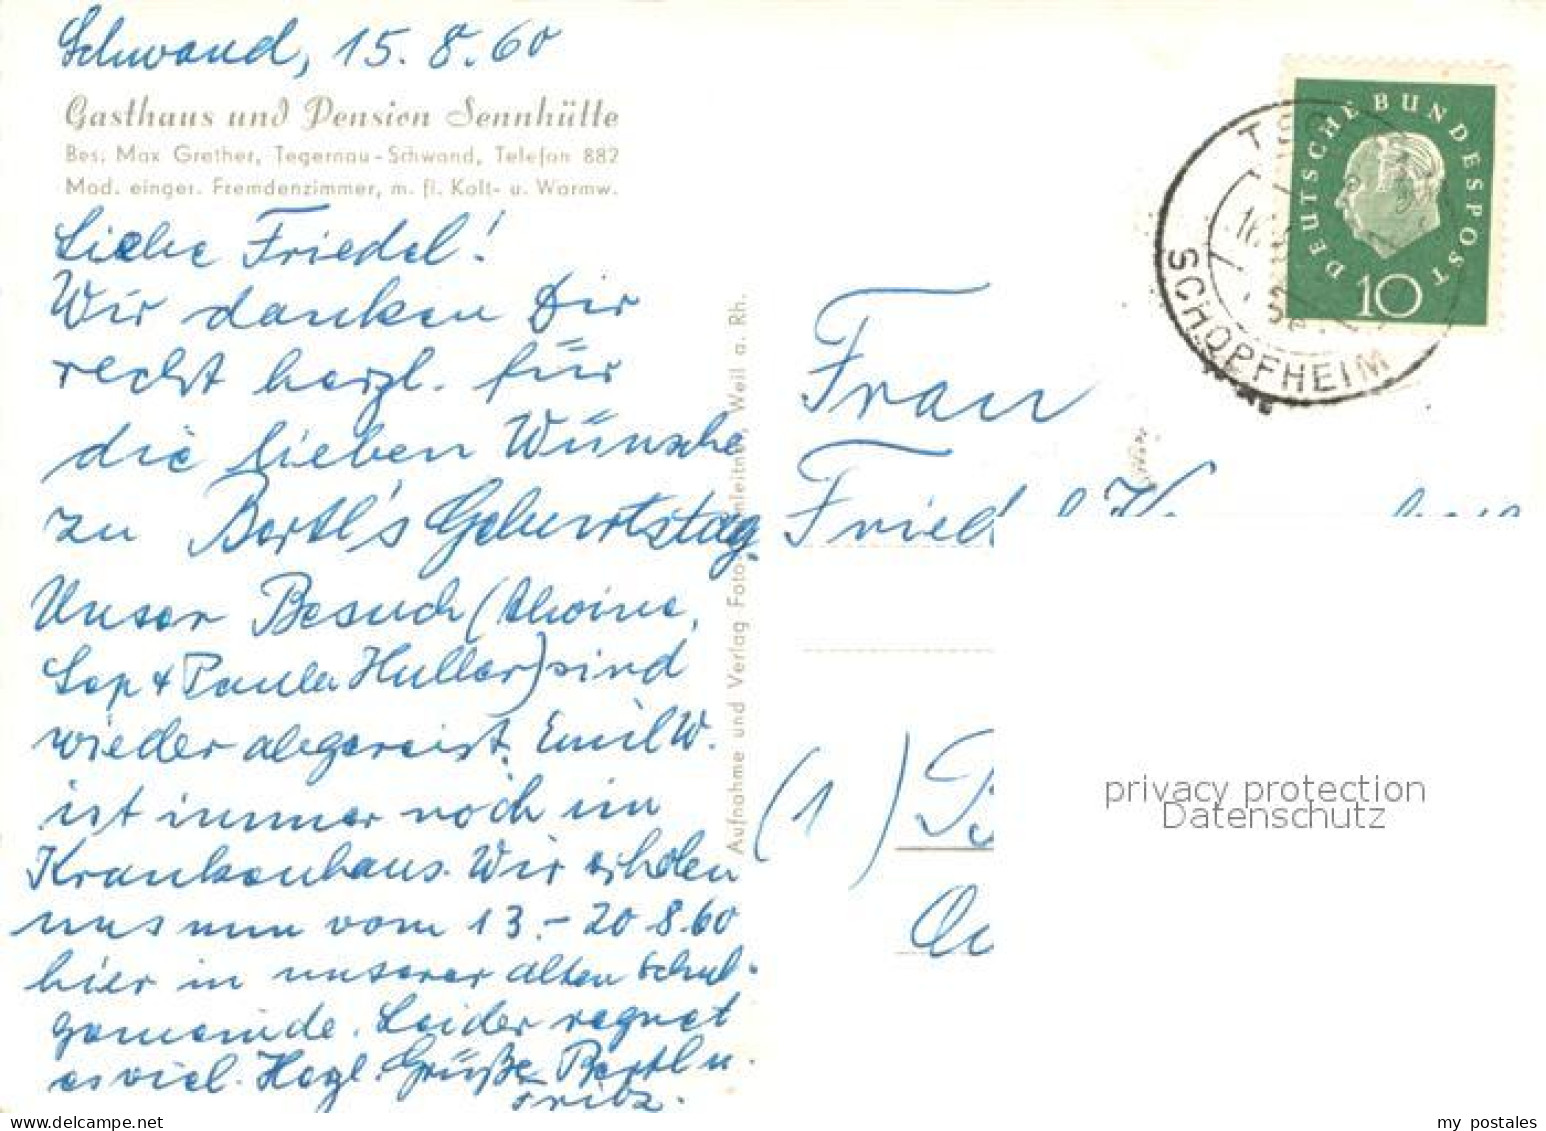 Schwand, 15. 8. 60
Gasthaus und Pension Sennhütte
Bes. Max Grether, Tegernau-Schwand, Telefon 882
Mod. einger. Fremdenzimmer, m. fl. Kalt- u. Warmw.
Liebe Friedel!
Wir danken Dir
recht herzl. für
die lieben Wünsche
zu Bertl's Geburtstag.
Unser Besuch (Alwine,
Sep + Paula Huller) sind
wieder abgereist. Emil W.
ist immer noch im
Krankenhaus. Wir erholen
uns nun vom 13.-20.8.60
hier in unserer alten Schul-
gemeinde. Leider regnet
es viel. Hzgl. Grüße Bertl u.
Fritz.
Aufnahme und Verlag Foto Weil a. Rh.
DEUTSCHE BUNDESPOST
10
SCHOPFHEIM
Frau
Fried
(1)
privacy protection
Datenschutz
my postales